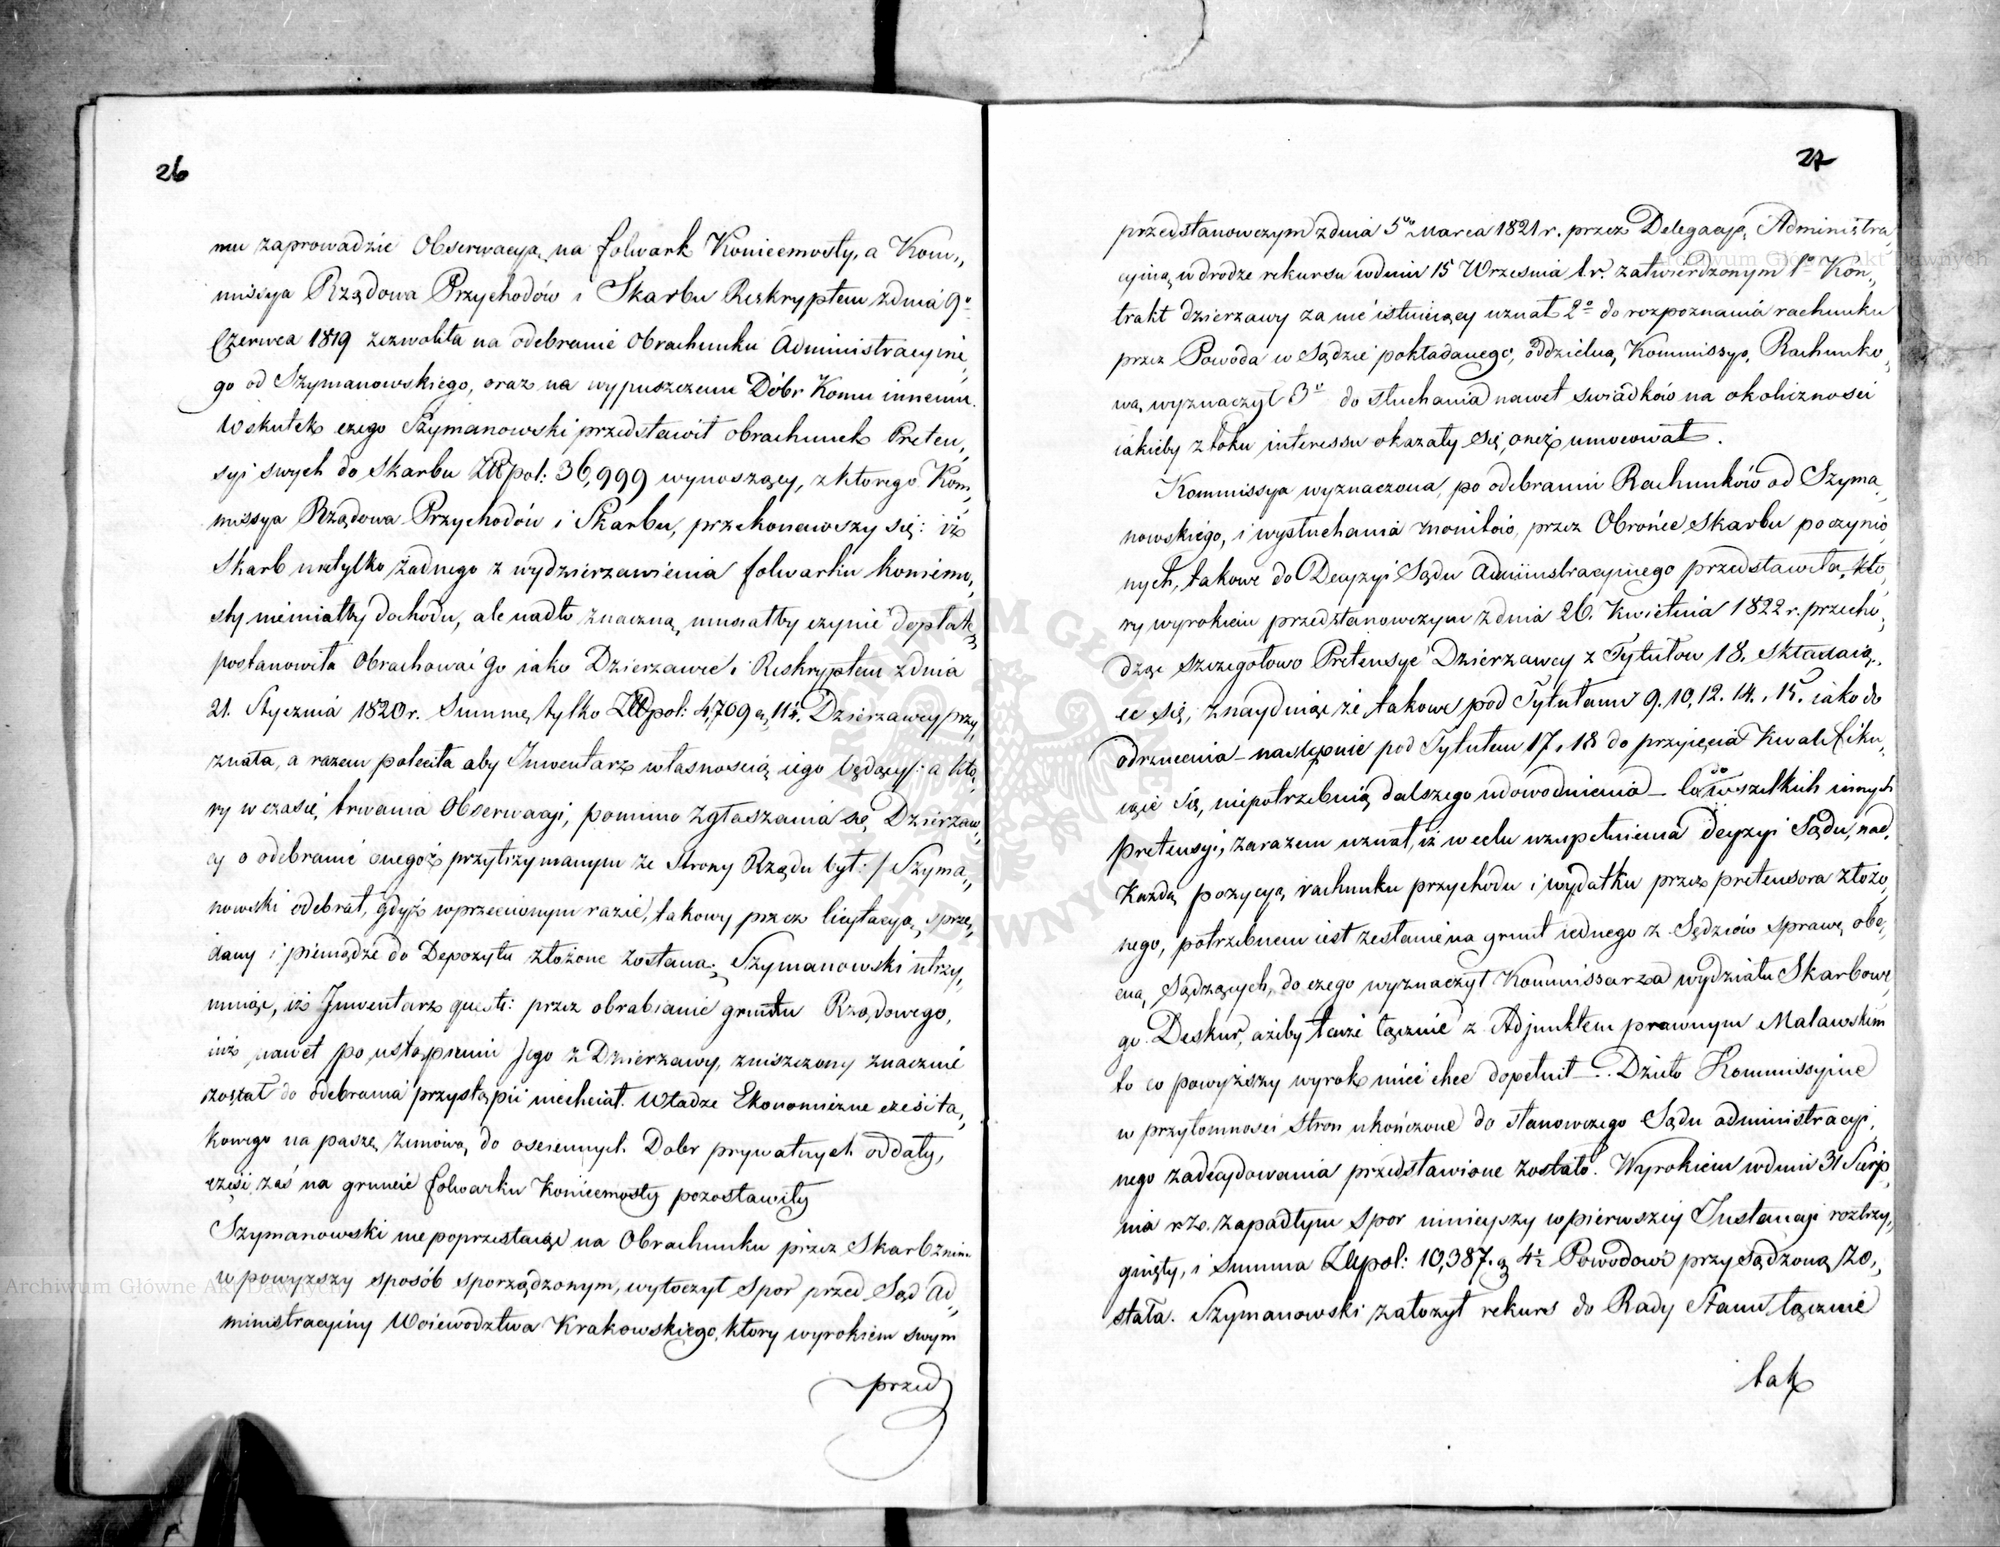 26
mu zaprowadzić Obserwacyą na folwark Koniecmosty, a Kom„
missya Rządowa Przychodów i Skarbu Reskryptem z dnia 9º
Czerwca 1819 zezwoliła na odebranie Obrachunku Administracyine„
go od Szymanowskiego, oraz na wypuszczenie Dóbr Komu innemu.
Wskutek czego Szymanowski przedstawił obrachunek Preten„
syi swych do Skarbu Złpol: 36,999 wynoszący, z którego Kom„
missya Rządowa Przychodów i Skarbu, przekonawszy się: iż
Skarb nietylko żadnego z wydzierzawienia folwarku koniecmo„
sty niemiałby dochodu, ale nadto znaczną musiałby czynić dopłatę
postanowiła Obrachować Go iako Dzierzawcę i Reskryptem z dnia
21. Stycznia 1820 r. Summę tylko Złpol: 4,709 g. 11½. Dzierzawcy przy„
znała, a razem poleciła aby Inwentarz własnością iego będący /: a któ„
ry w czasie trwania Obserwacyi, pomimo zgłaszania się Dzierzaw„
cy o odebranie onegoż przytrzymanym ze Strony Rządu był :/ Szyma„
nowski odebrał, gdyż w przeciwnym razie, takowy przez licytacyą sprze„
dany i pieniądze do Depozytu złożone zostaną; Szymanowski utrzy„
muiąc, iż Inwentarz quest: przez obrabianie gruntu Rządowego,
iuż nawet po ustąpieniu Jego z Dzierzawy, zniszczony znacznie
został do odebrania przystąpić niechciał. Władze Ekonomiczne część ta„
kowego na paszę zimową do osciennych Dobr prywatnych oddały,
część zaś na gruncie folwarku Koniecmosty pozostawiły
Szymanowski niepoprzestaiąc na Obrachunku przez Skarb z nim
w powyższy sposób sporządzonym, wytoczył Spor przed Sąd Ad„
ministracyiny Woiewodztwa Krakowskiego, który wyrokiem swym
przed
27
przedstanowczym z dnia 5go Marca 1821 r. przez Delegacyą Administra„
cyiną w drodze rekursu w dniu 15 Września t.r. zatwierdzonym 1º Kon„
trakt dzierzawy za nieistnieiący uznał 2º do rozpoznania rachunku
przez Powoda w Sądzie pokładanego, oddzielną Kommissyą Rachunko„
wą wyznaczył 3º do słuchania nawet swiadków na okoliczności
iakieby z toku interessu okazały się, oneż umocował.
Kommissya wyznaczona, po odebraniu Rachunków od Szyma„
nowskiego, i wysłuchania monitów, przez Obrońcę Skarbu poczynio„
nych, takowe do Decyzyi Sądu Administracyinego przedstawiła, któ„
ry wyrokiem przedstanowczym z dnia 26. Kwietnia 1822 r. przecho„
dząc szczegołowo Pretensye Dzierzawcy z Tytułow 18. składaią„
ce się, znayduiąc że takowe pod Tytułami 9. 10, 12. 14. i 15. iako do
odrzucenia – następnie pod Tytułem 17 i 18 do przyięcia Kwalifiku„
iące się, niepotrzebuią dalszego udowodnienia – Co do wszelkich innych
pretensyi, zarazem uznał, iż w celu uzupełnienia decyzyi Sądu, nad
każdą pozycyą rachunku przychodu i wydatku przez pretensora złożo„
nego, potrzebnem iest zesłanie na grunt iednego z Sędziów sprawę obe„
cną Sądzących, do czego wyznaczył Kommissarza wydziału Skarbowe„
go Deskur, ażeby tenże łącznie z Adjunktem prawnym Malawskim
to co powyższy wyrok mieć chce dopełnił –. Dzieło Kommissyine
w przytomności stron ukończone do stanowczego Sądu administracyi„
nego zadecydowania przedstawione zostało. Wyrokiem w dniu 31 Sierp„
nia r.zo. zapadłym Spor ninieyszy w pierwszey Instancyi roztrzy„
gnięty, i Summa Złpol: 10,387. g 4½ Powodowi przysądzoną zo„
stała. Szymanowski założył rekurs do Rady Stanu łącznie
tak
Archiwum Główne Akt Dawnych
Archiwum Główne Akt Dawnych
ARCHIWUM GŁÓWNE AKT DAWNYCH